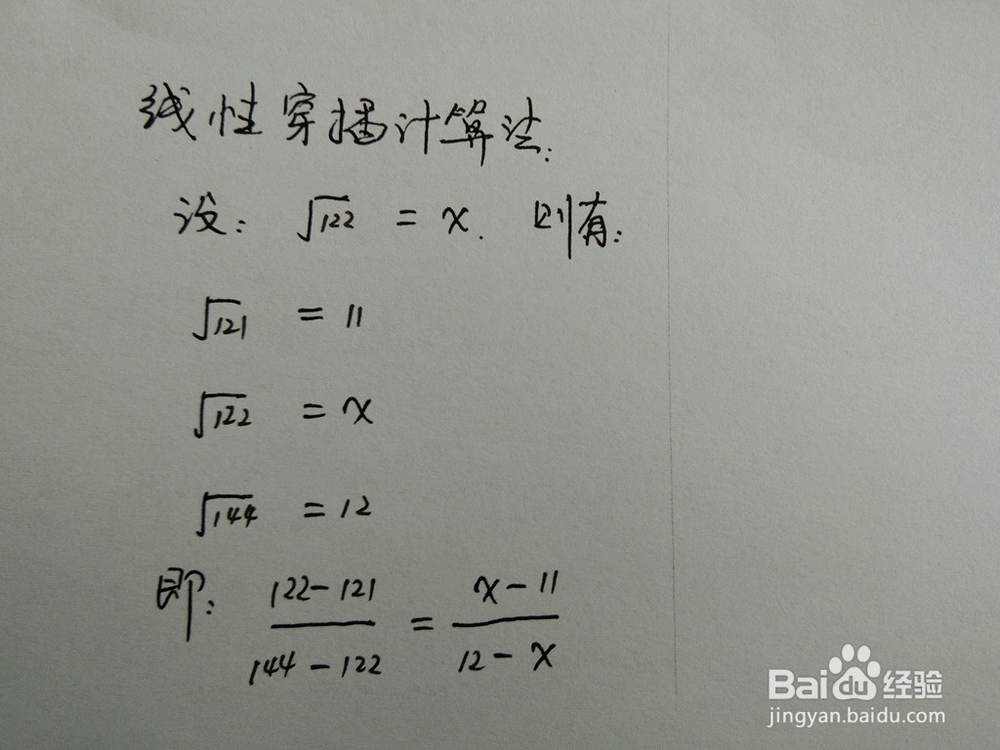 线性穿插计算法:
设: √122 = x. 则有:
√121 = 11
√122 = x
√144 = 12
即: (122-121)/(144-122) = (x-11)/(12-x)
Baidu经验
jingyan.baidu.com